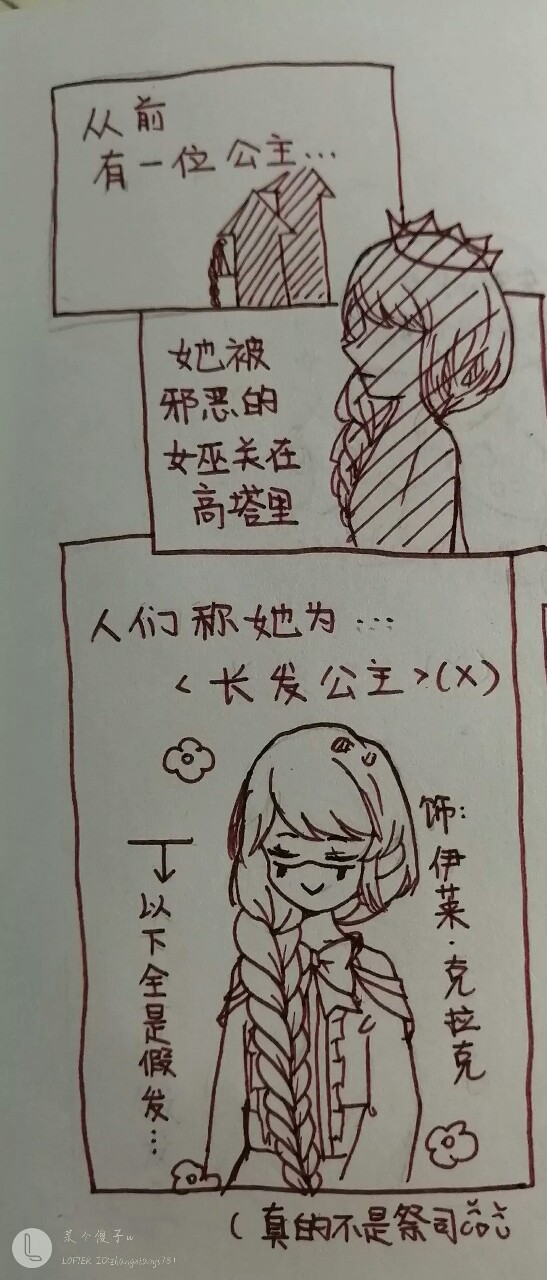 从前
有一位公主…
她被
邪恶的
女巫关在
高塔里
人们称她为…
<长发公主>(X)
饰:伊莱·克拉克
以下全是假发…
(真的不是祭司
某个傻子w